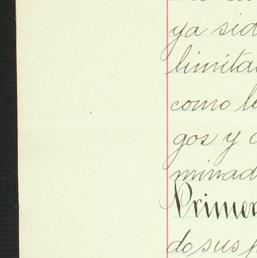 ya sid
limita
como l
gos y
minad
Primer
do sus